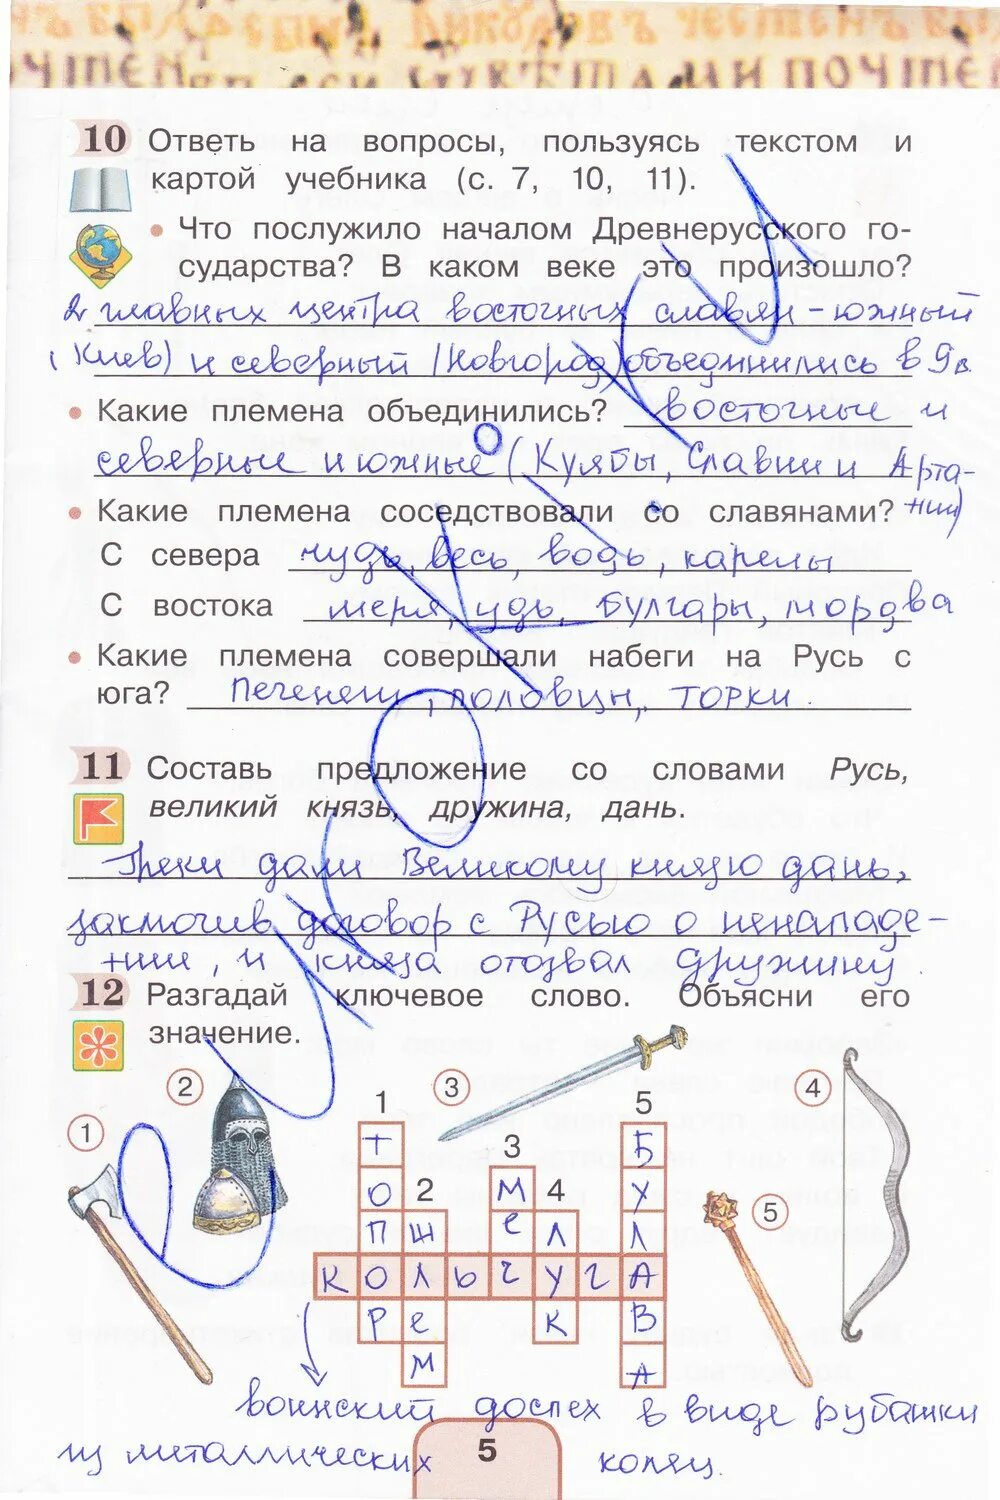 10 Ответь на вопросы, пользуясь текстом и
картой учебника (с. 7, 10, 11).
• Что послужило началом Древнерусского го-
сударства? В каком веке это произошло?
2 главных центра восточных славян - южный
(Киев) и северный (Новгород) объединились в 9 в.
• Какие племена объединились? восточные и
северные и южные (Куябы, Славии и Арта-
нии)
• Какие племена соседствовали со славянами?
С севера чудь, весь, водь, карелы
С востока меря, удь, Булгары, мордва
• Какие племена совершали набеги на Русь с
юга? Печенеги, половцы, торки.
11 Составь предложение со словами Русь,
великий князь, дружина, дань.
Греки дали Великому князю дань,
заключив договор с Русью о ненападе-
нии, и князь отозвал дружину.
12 Разгадай ключевое слово. Объясни его
значение.
1 2 3 4 5
1 ТОПОР
2 ШЛЕМ
3 МеЧ
4 ЛУК
5 БУЛАВА
КОЛЬЧУГА
воинский доспех в виде рубашки
из металлических колец.
5